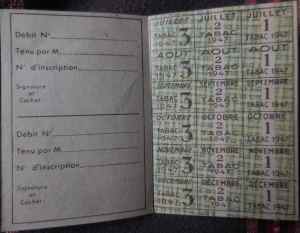 Débit N°
Tenu par M.
N° d'inscription
Signature
et
Cachet
Débit N°
Tenu par M.
N° d'inscription
Signature
et
Cachet
JUILLET JUILLET JUILLET
3 2 1
TABAC 1947 TABAC 1947 TABAC 1947
AOUT AOUT AOUT
3 2 1
TABAC 1947 TABAC 1947 TABAC 1947
SEPTEMBRE SEPTEMBRE SEPTEMBRE
3 2 1
TABAC 1947 TABAC 1947 TABAC 1947
OCTOBRE OCTOBRE OCTOBRE
3 2 1
TABAC 1947 TABAC 1947 TABAC 1947
NOVEMBRE NOVEMBRE NOVEMBRE
3 2 1
TABAC 1947 TABAC 1947 TABAC 1947
DÉCEMBRE DÉCEMBRE DÉCEMBRE
3 2 1
TABAC 1947 TABAC 1947 TABAC 1947